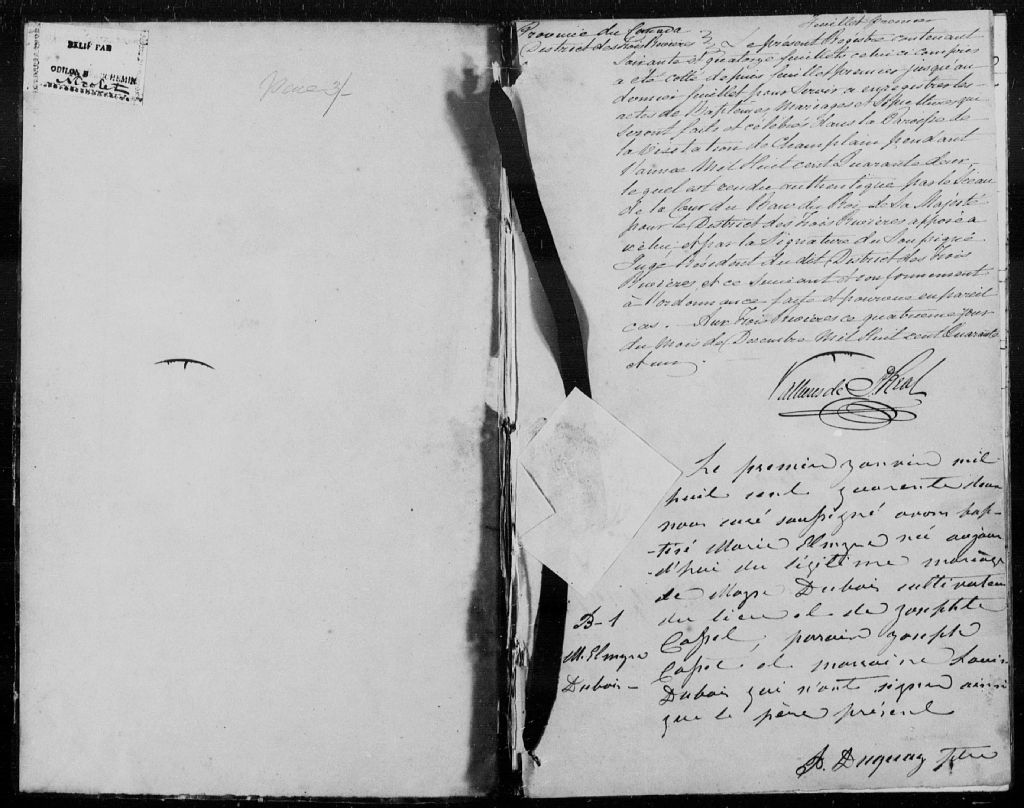 RELIÉ PAR
ODILON D CHEMIN
Nicolet
Feuillet premier
Province du Canada
District des Trois Rivières } Le présent Registre contenant
Soixante et quatorze feuillets celui ci compris
a été cotté depuis feuillet premier jusqu'au
dernier feuillet pour Servir a enregistrer les
actes de Baptêmes Mariages et Sépultures qui
seront faits et célébrés dans la Paroisse de
la Visitation de Champlain pendant
l'année Mil Huit cent Quarante deux,
lequel est rendu authentique par le Sceau
de la Cour du Banc du Roi, de Sa Majesté
pour le District des Trois Rivières apposé a
celui et par la Signature du Soussigné
Juge Résident du dit District des Trois
Rivières, et ce suivant et conformément
à l'ordonnance faite et pourvue en pareil
cas. Aux Trois Rivières ce quatrieme jour
du Mois de Décembre Mil Huit cent Quarante
et un.
Vallières de St Réal
Le premier janvier mil
huit cent quarente deux
nous curé soussigné avons bap-
-tisé Marie Elmyre né aujour
-d'hui du légitime mariage
de Moyse Dubois cultivateur
du lieu et de Josephte
Capel; parain Joseph
Capel et marraine Louise
Dubois qui n'ont signer ainsi
que le père présent
B-1
M. Elmyre
Dubois-
Duguay Ptre